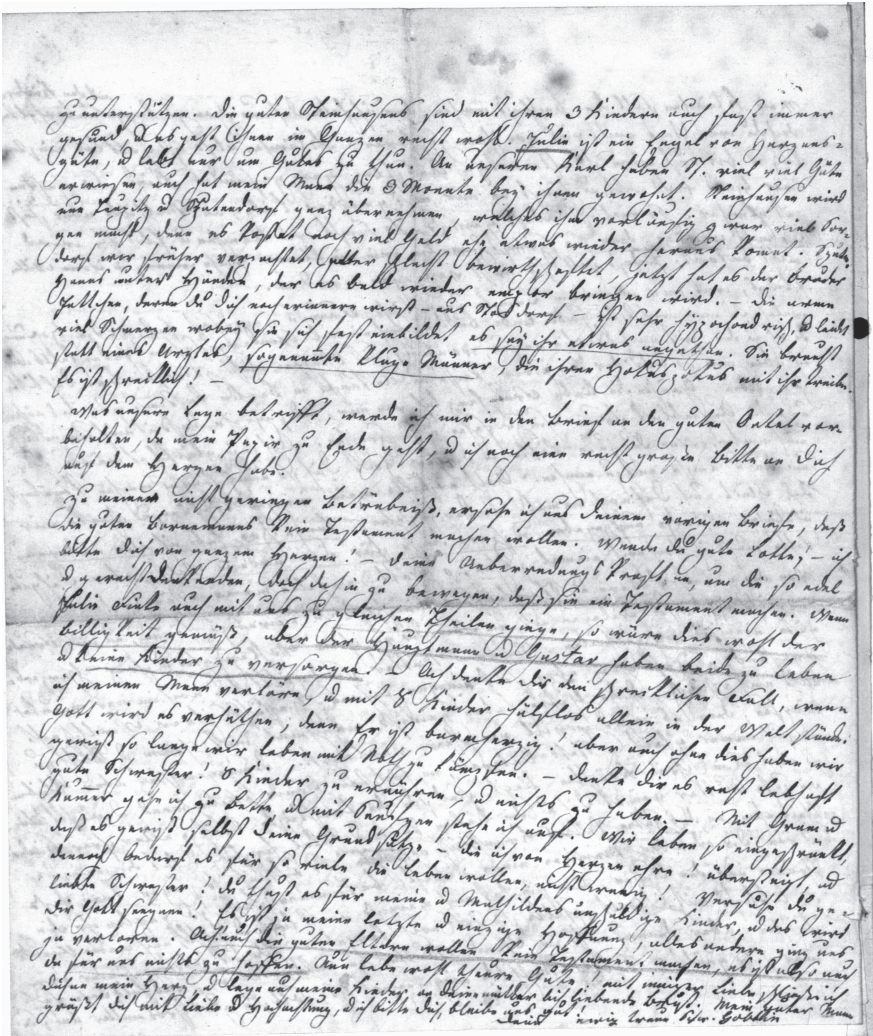 zu unterstützen. Die guten Steinhausens sind mit ihren 3 Kindern auch fast immer
gesund u es geht ihnen im Ganzen recht wohl. Julie ist ein Engel von Herzens=
güte, u lebt nur um Gutes zu thun. An unserem Karl haben St. viel viel Gute
erwiesen, auch hat mein Mann die 3 Monate bey ihnen gewohnt. Steinhausen wird
nun u ganz übernehmen, welches ihm vorläufig zwar viel Sor=
gen macht, denn es kostet noch viel Geld ehe etwas wieder heraus kommt.
dorf war früher verpachtet, aber schlecht bewirthschaftet, jetzt hat es der Bruder
Hans unter Händen, der es bald wieder empor bringen wird. – Die arme
Jettchen, deren du dich noch erinnern wirst – aus – ist sehr hypochondrisch, u leidet
viel Schmerzen wobey sie sich fest einbildet es sey ihr etwas angethan. Sie braucht
statt eines Arztes, sogenannte kluge Männer, die ihren Hokuspokus mit ihr treiben.
Es ist schrecklich! –
Was unsere Lage betrifft, werde ich mir in den Brief an den guten Onkel vor=
behalten, da mein Papir zu Ende geht, u ich noch eine recht große Bitte an Dich
auf dem Herzen habe.
Zu meiner nicht geringen Betrübniß, ersehe ich aus Deinem vorigen Briefe, daß
die guten Bornemanns kein Testament machen wollen. Wende du gute Lotte! – ich
bitte Dich von ganzem Herzen! – Deine Ueberredungs Kraft an, um die so edel
u gerecht denkenden, doch dahin zu bewegen, daß sie ein Testament machen. Wenn
Julie auch mit uns zu gleichen Theilen ginge, so wäre dies wohl der
Billigkeit gemäß, aber der Hauptmann u Gustav haben beide zu leben
u keine Kinder zu versorgen. – Ach denke dir den schrecklichen Fall, wenn
ich meinen Mann verlöre, u mit 8 Kinder hülflos allein in der Welt stünde.
Gott wird es verhüthen, denn Er ist barmherzig! aber auch ohne dies haben wir
gewiß so lange wir leben mit Noth zu kämpfen. – Denke dir es recht lebhaft
gute Schwester! 8 Kinder zu ernähren, u nichts zu haben. – Mit Gram u
Kummer gehe ich zu Bette u mit Seufzen stehe ich auf. Wir leben so eingeschränkt,
daß es gewiß selbst Deine Grundsätze – die ich von Herzen ehre! übersteigt, u
dennoch bedarf es für so viele die leben wollen, nicht wenig! Versuche Du ge=
liebte Schwester! du thust es für meine u Mathildens unschuldige Kinder, u das wird
dir Gott seegnen! Es ist ja meine letzte u einzige Hoffnung, alles andere ging uns
ja verloren. Auch die guten Eltern wollen kein Testament machen, es ist also auch
da für uns nichts zu hoffen. Nun lebe wohl theure Gute! mit inniger Liebe schließe ich
dich an mein Herz, u lege auch meine Kinder an deine mütterlich liebende Brust. Mein guter Mann
grüßt dich mit Liebe u Hochachtung, u bitte dich, bleibe uns gut!
Deine ewig treue Schw.